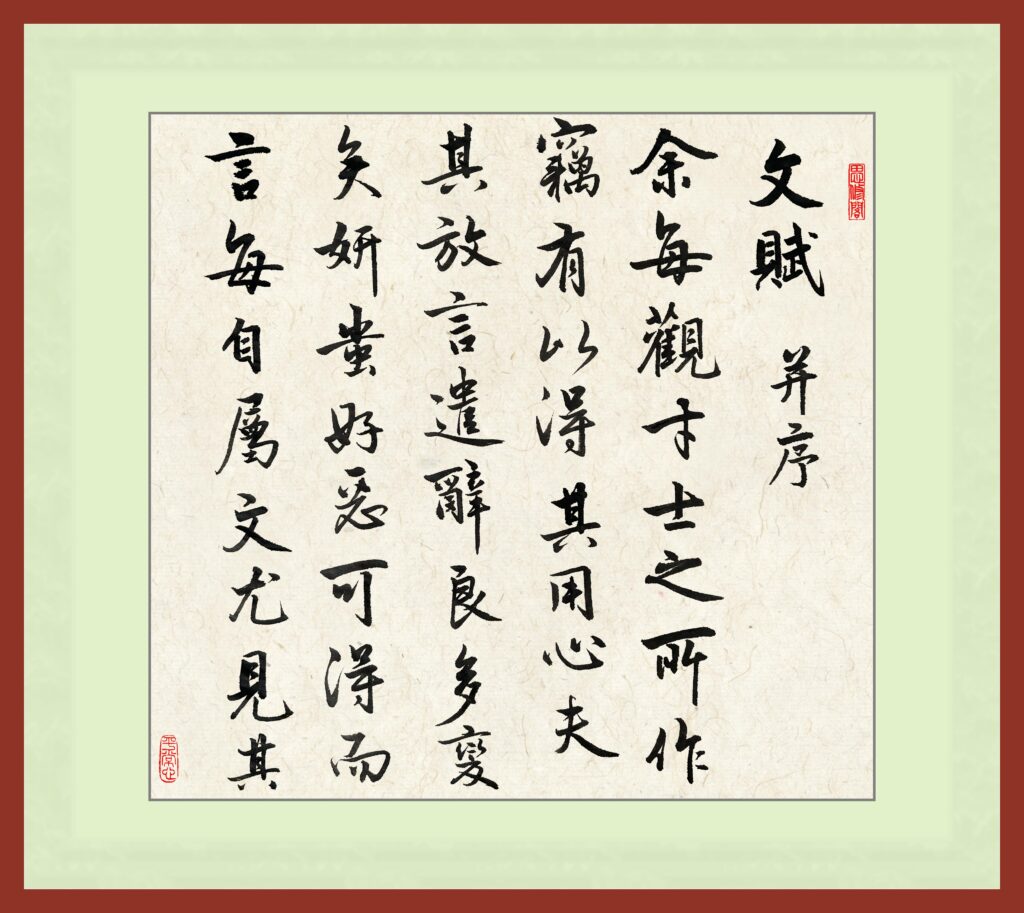 文賦 并序
余每觀才士之所作
竊有以得其用心夫
其放言遣辭良多變
矣妍蚩好惡可得而
言每自屬文尤見其
平常心